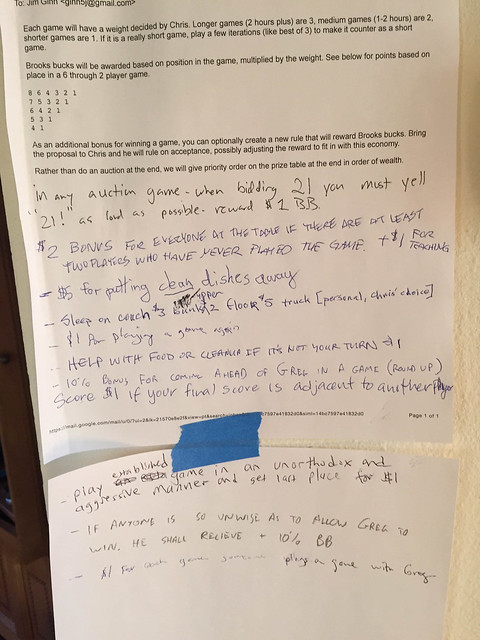 To: Jim Ginn <ginnbj@gmail.com>
Each game will have a weight decided by Chris. Longer games (2 hours plus) are 3, medium games (1-2 hours) are 2,
shorter games are 1. If it is a really short game, play a few iterations (like best of 3) to make it counter as a short
game.
Brooks bucks will be awarded based on position in the game, multiplied by the weight. See below for points based on
place in a 6 through 2 player game.
8 6 4 3 2 1
7 5 3 2 1
6 4 2 1
5 3 1
4 1
As an additional bonus for winning a game, you can optionally create a new rule that will reward Brooks bucks. Bring
the proposal to Chris and he will rule on acceptance, possibly adjusting the reward to fit in with this economy.
Rather than do an auction at the end, we will give priority order on the prize table at the end in order of wealth.
In any auction game - when bidding 21 you must yell
"21!" as loud as possible - reward $1 BB.
$2 BONUS FOR EVERYONE AT THE TABLE IF THERE ARE AT LEAST
TWO PLAYERS WHO HAVE NEVER PLAYED THE GAME. +$1 FOR
TEACHING
- $5 for putting clean dishes away
- Sleep on couch $3 upper bunk $2 floor $5 truck [personal, chris' choice]
- $1 For playing a game again
- HELP WITH FOOD OR CLEANUP IF IT'S NOT YOUR TURN $1
- 10% BONUS FOR COMING AHEAD OF GREG IN A GAME (ROUND UP)
Score $1 if your final score is adjacent to another player
Page 1 of 1
- play established game in an unorthodox and
aggressive manner and get last place for $1
- IF ANYONE IS SO UNWISE AS TO ALLOW GREG TO
WIN. HE SHALL RECIEVE + 10% BB
- $1 For each game someone plays a game with Greg